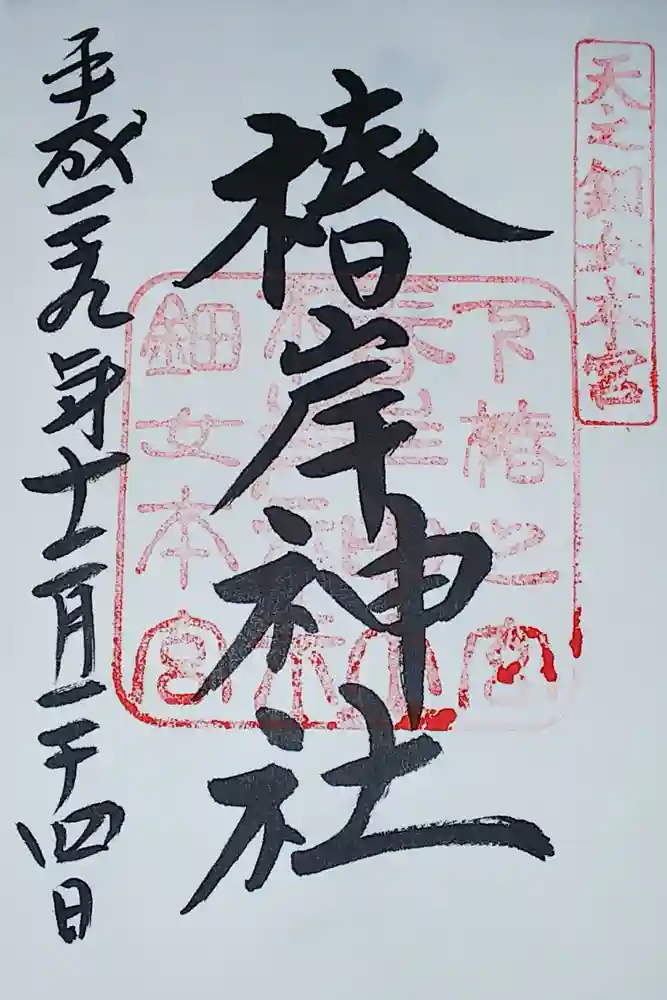 天之鈿女本宮
下椿之宮
椿岸神社
鈿女本宮
平成二十九年十二月二十四日